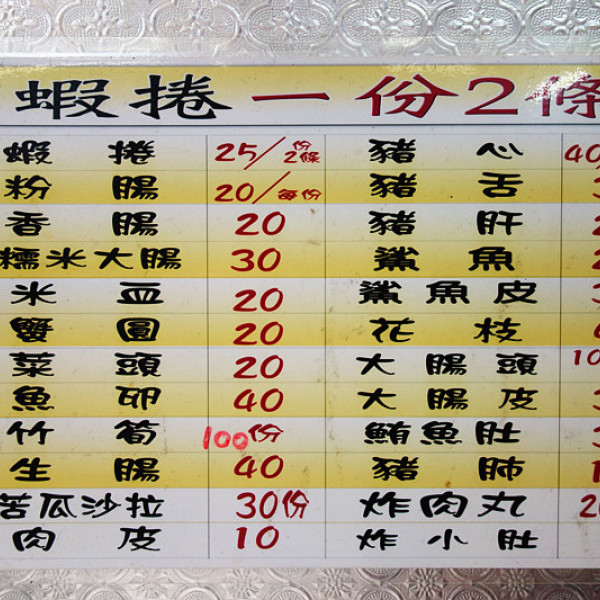 蝦捲一份2條
蝦捲 25/份2條 豬心 40
粉腸 20/每份 豬舌
香腸 20 豬肝
糯米大腸 30 鯊魚
米血 20 鯊魚皮
蟹圓 20 花枝
菜頭 20 大腸頭 10
魚卵 40 大腸皮
竹筍 100份 鮪魚肚
生腸 40 豬肺
苦瓜沙拉 30份 炸肉丸
肉皮 10 炸小肚